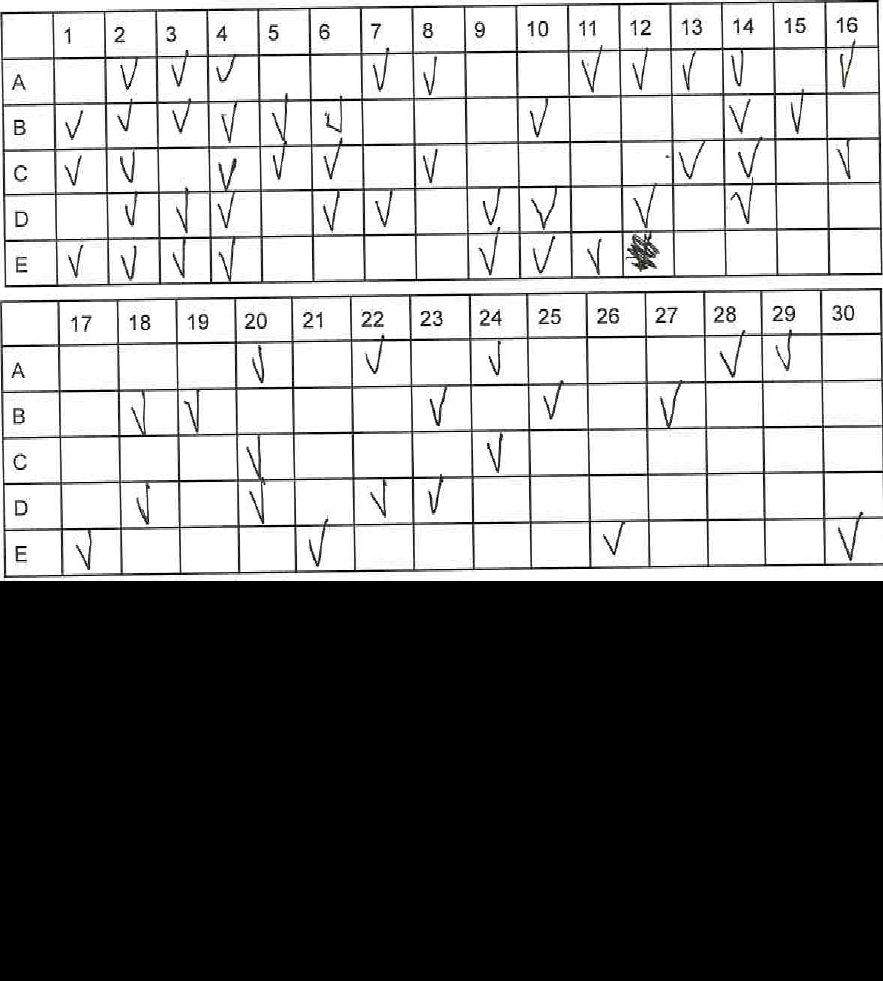 1 2 3 4 5 6 7 8 9 10 11 12 13 14 15 16
A ✓ ✓ ✓ ✓ ✓ ✓ ✓ ✓ ✓ ✓
B ✓ ✓ ✓ ✓ ✓ ✓ ✓ ✓ ✓
C ✓ ✓ ✓ ✓ ✓ ✓ ✓ ✓ ✓
D ✓ ✓ ✓ ✓ ✓ ✓ ✓ ✓ ✓
E ✓ ✓ ✓ ✓ ✓ ✓ ✓
17 18 19 20 21 22 23 24 25 26 27 28 29 30
A ✓ ✓ ✓ ✓ ✓
B ✓ ✓ ✓ ✓ ✓
C ✓ ✓
D ✓ ✓ ✓ ✓
E ✓ ✓ ✓ ✓